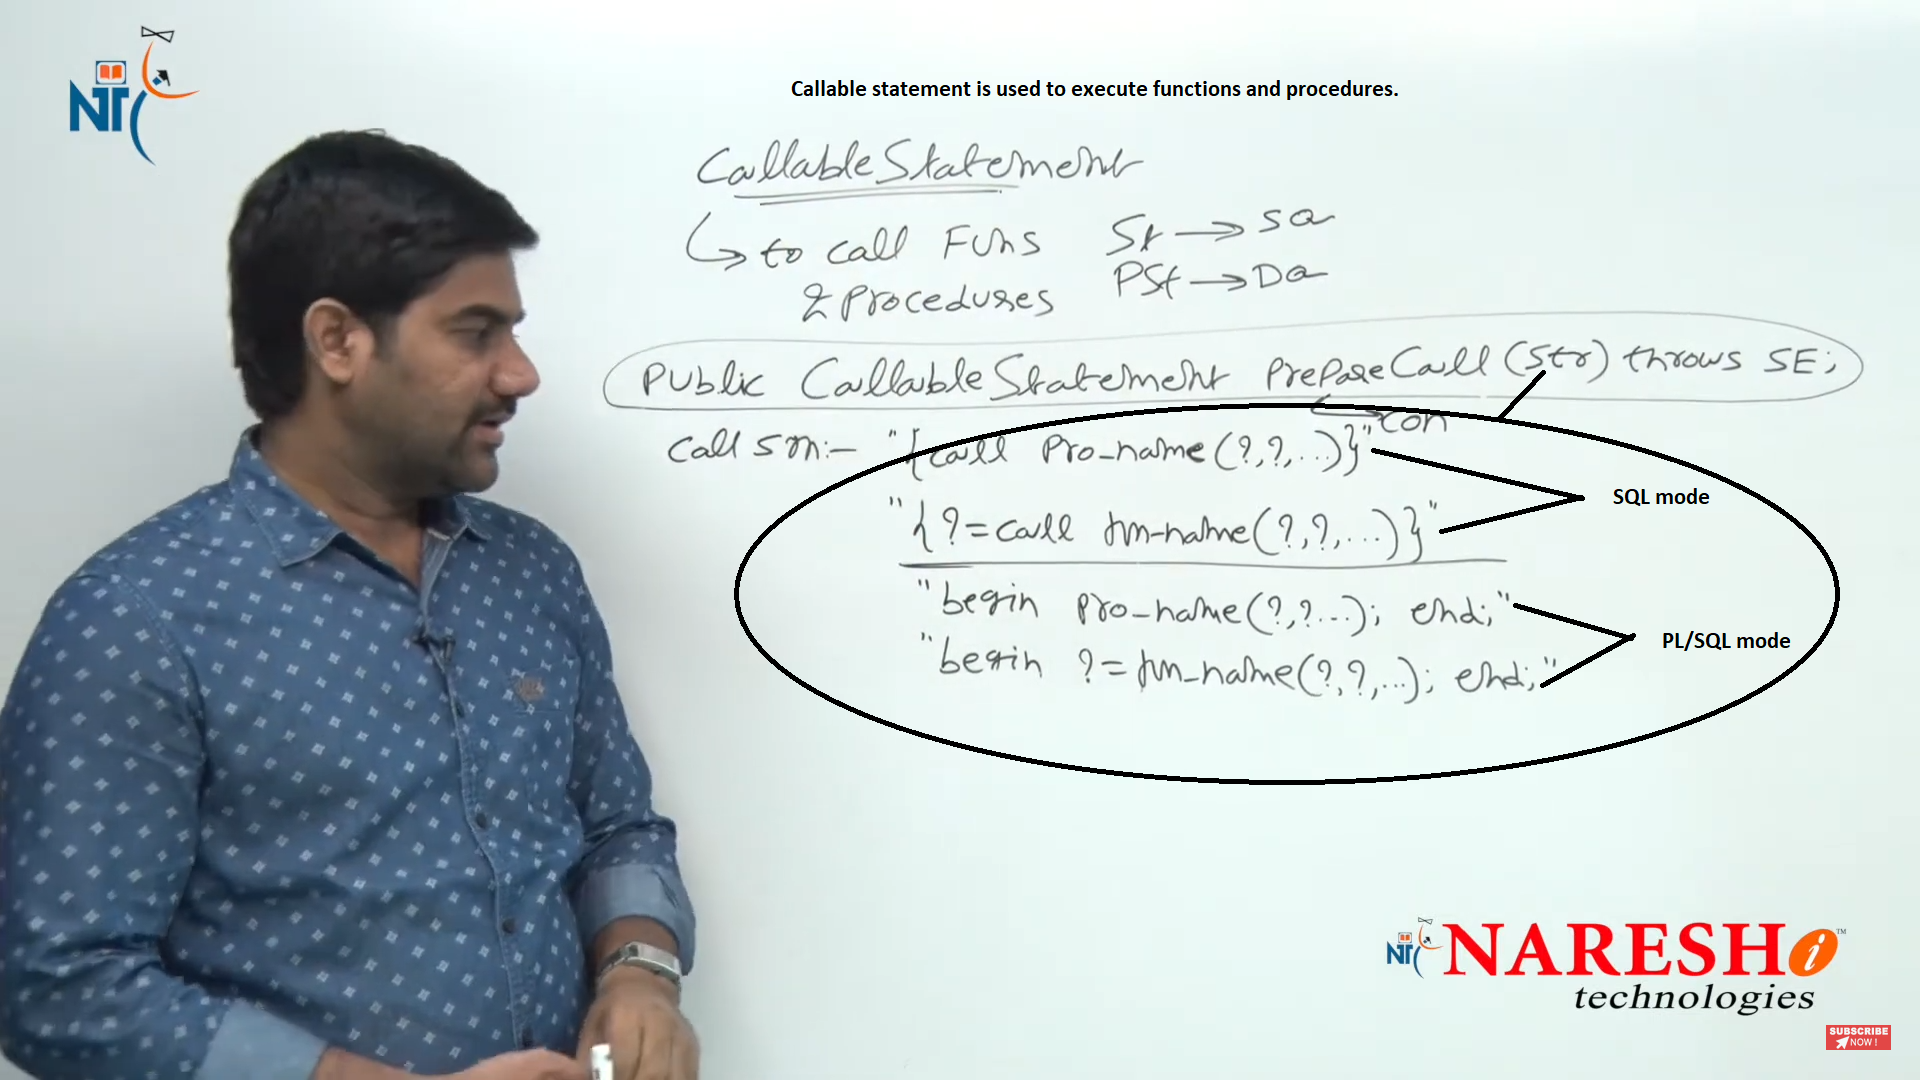 NT
Callable statement is used to execute functions and procedures.
CallableStatement
to call Funs
& Procedures
St → SQ
PSt → DQ
Public CallableStatement PrepareCall (Str) throws SE;
con
"{call Pro-name(?,?,...)}"
"{?=call fun-name(?,?,...)}"
SQL mode
"begin pro-name(?,?...); end;"
"begin ?=fun-name(?,?,...); end;"
PL/SQL mode
NT NARESH i ™
technologies
SUBSCRIBE
NOW !